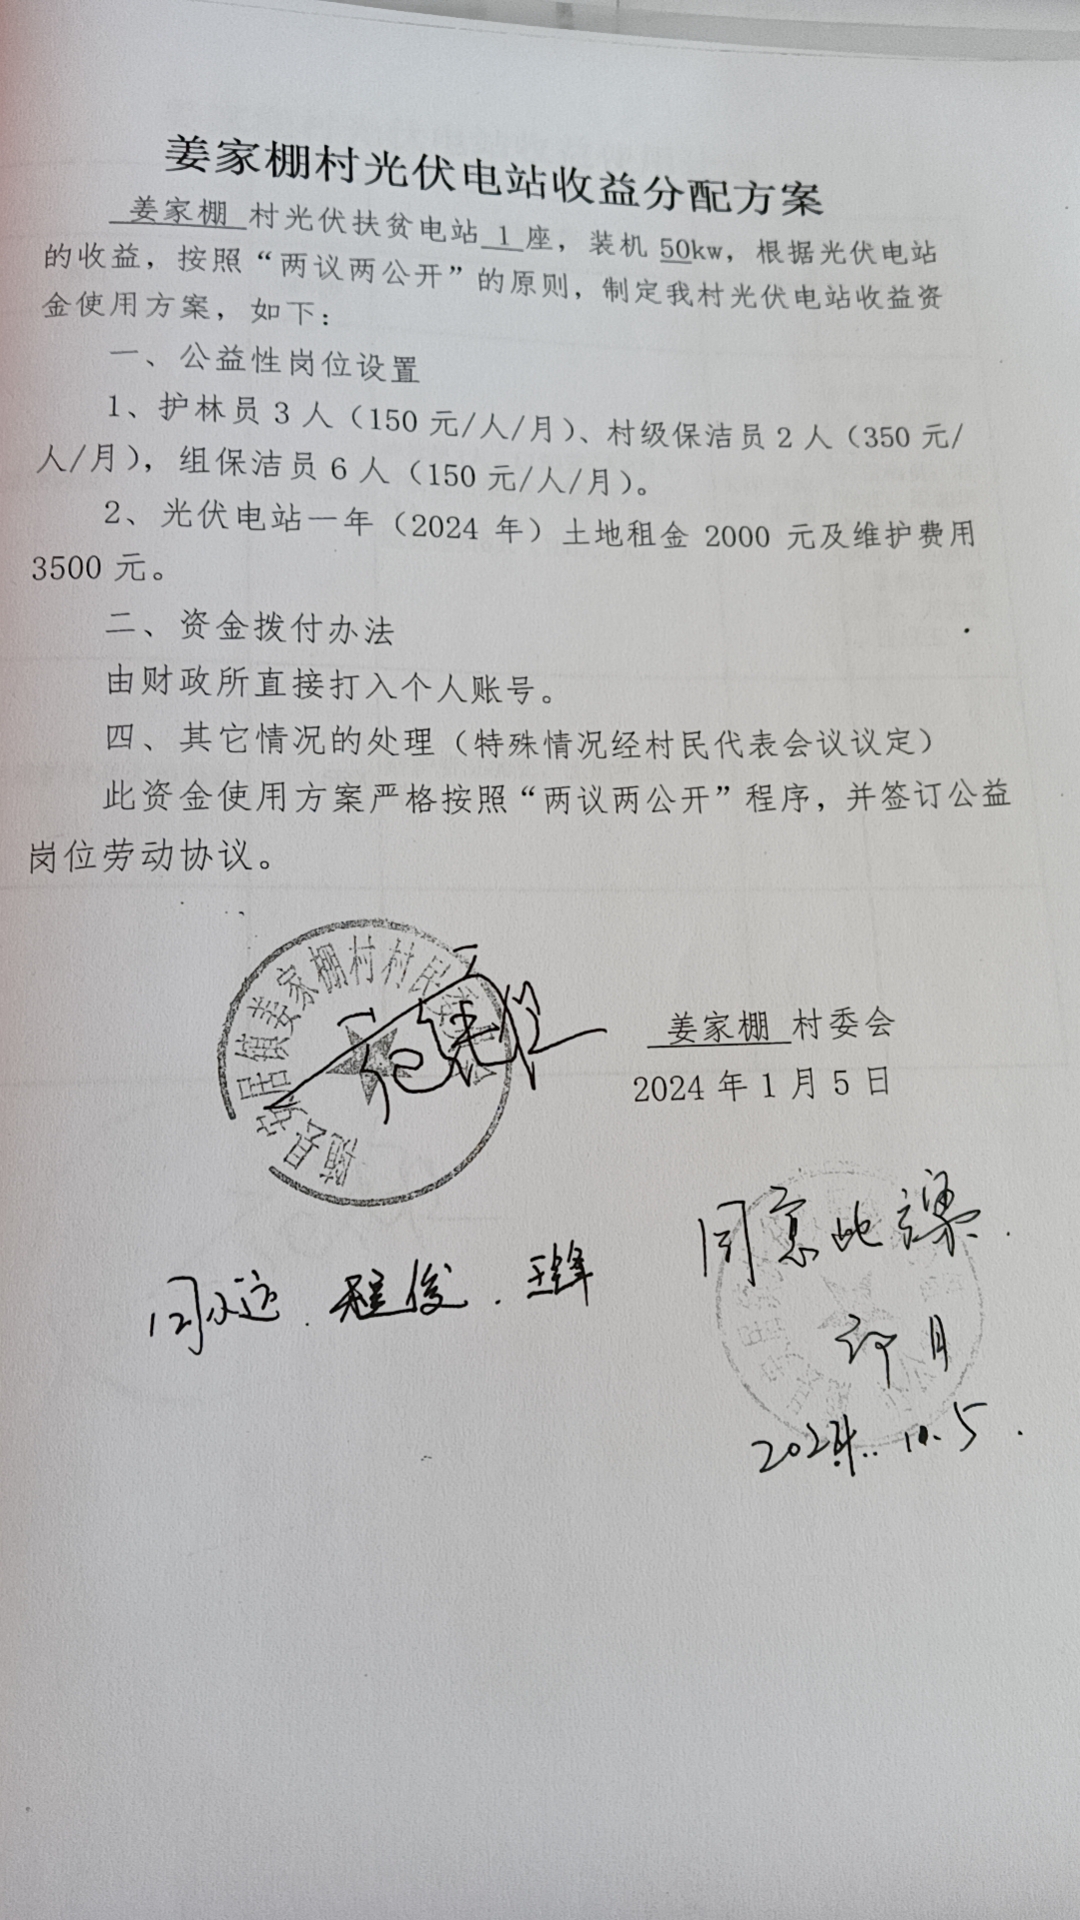 姜家棚村光伏电站收益分配方案
姜家棚 村光伏扶贫电站 1 座，装机 50kw，根据光伏电站
的收益，按照“两议两公开”的原则，制定我村光伏电站收益资
金使用方案，如下：
一、公益性岗位设置
1、护林员 3 人（150 元/人/月）、村级保洁员 2 人（350 元/
人/月），组保洁员 6 人（150 元/人/月）。
2、光伏电站一年（2024 年）土地租金 2000 元及维护费用
3500 元。
二、资金拨付办法
由财政所直接打入个人账号。
四、其它情况的处理（特殊情况经村民代表会议议定）
此资金使用方案严格按照“两议两公开”程序，并签订公益
岗位劳动协议。
随县安居镇姜家棚村村民委员会
姜家棚 村委会
2024 年 1 月 5 日
同意此方案.
程俊.